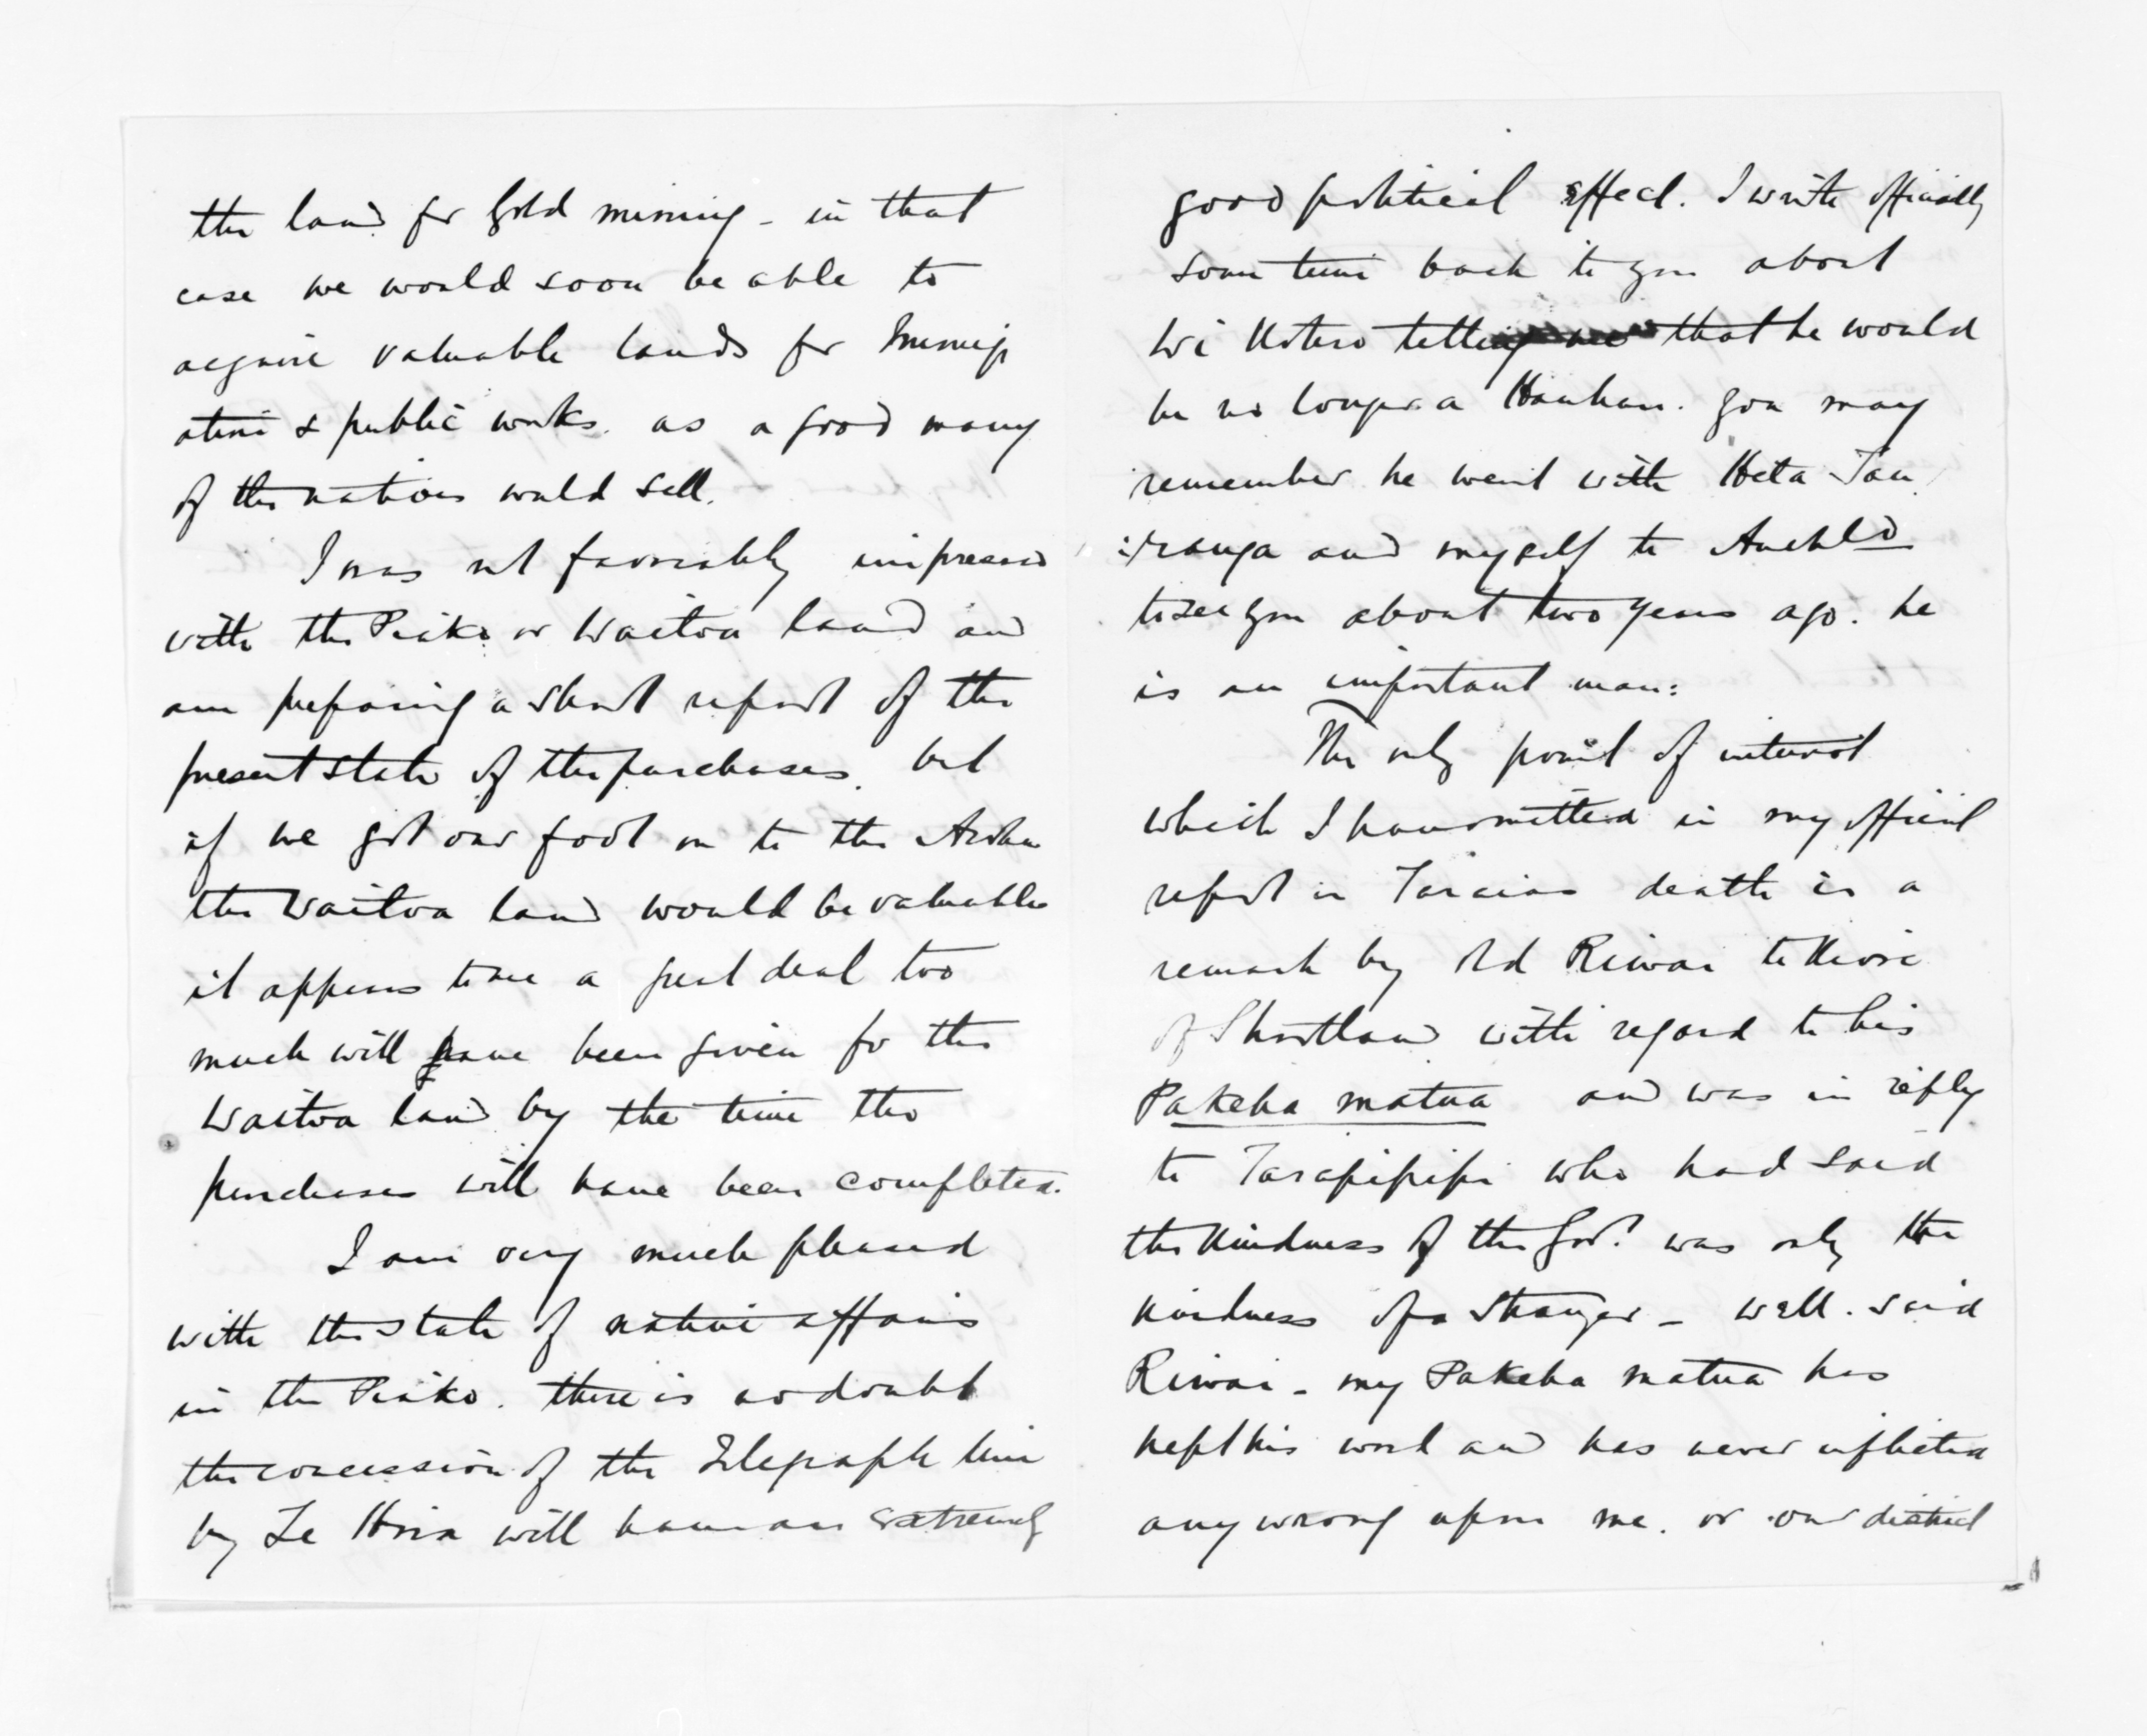 the land for Gold mining - in that
case we would soon be able to
acquire valuable lands for Immigr
ation & public works. as a good many
of the natives would sell.
I was not favorably impressed
with the Piako or Waitoa land and
am preparing a short report of the
present state of the purchases. but
if we get our foot on to the Aroha
the Waitoa land would be valuable
it appears to me a great deal too
much will have been given for the
Waitoa land by the time the
purchases will have been completed.
I am very much pleased
with the state of native affairs
in the Piako. there is no doubt
the concession of the Telegraph line
by Te Hira will have an extremely
good political effect. I write officially
some time back to you about
Wi Kotero that he would
be no longer a Hauhau. you may
remember he went with Heta Tau
:ranga and myself to Auckld
to see you about two years ago. he
is an important man:
The only point of interest
which I transmitted in my official
report in Taraias death is a
remark by old Riwai te Kiore
of Shortland with regard to his
Pakeha matua and was in reply
to Tarapipipi who had said
the kindness of the Govt was only the
kindness of a stranger - well. said
Riwai - my Pakeha matua has
kept his word and has never inflicted
any wrong upon me. or our district